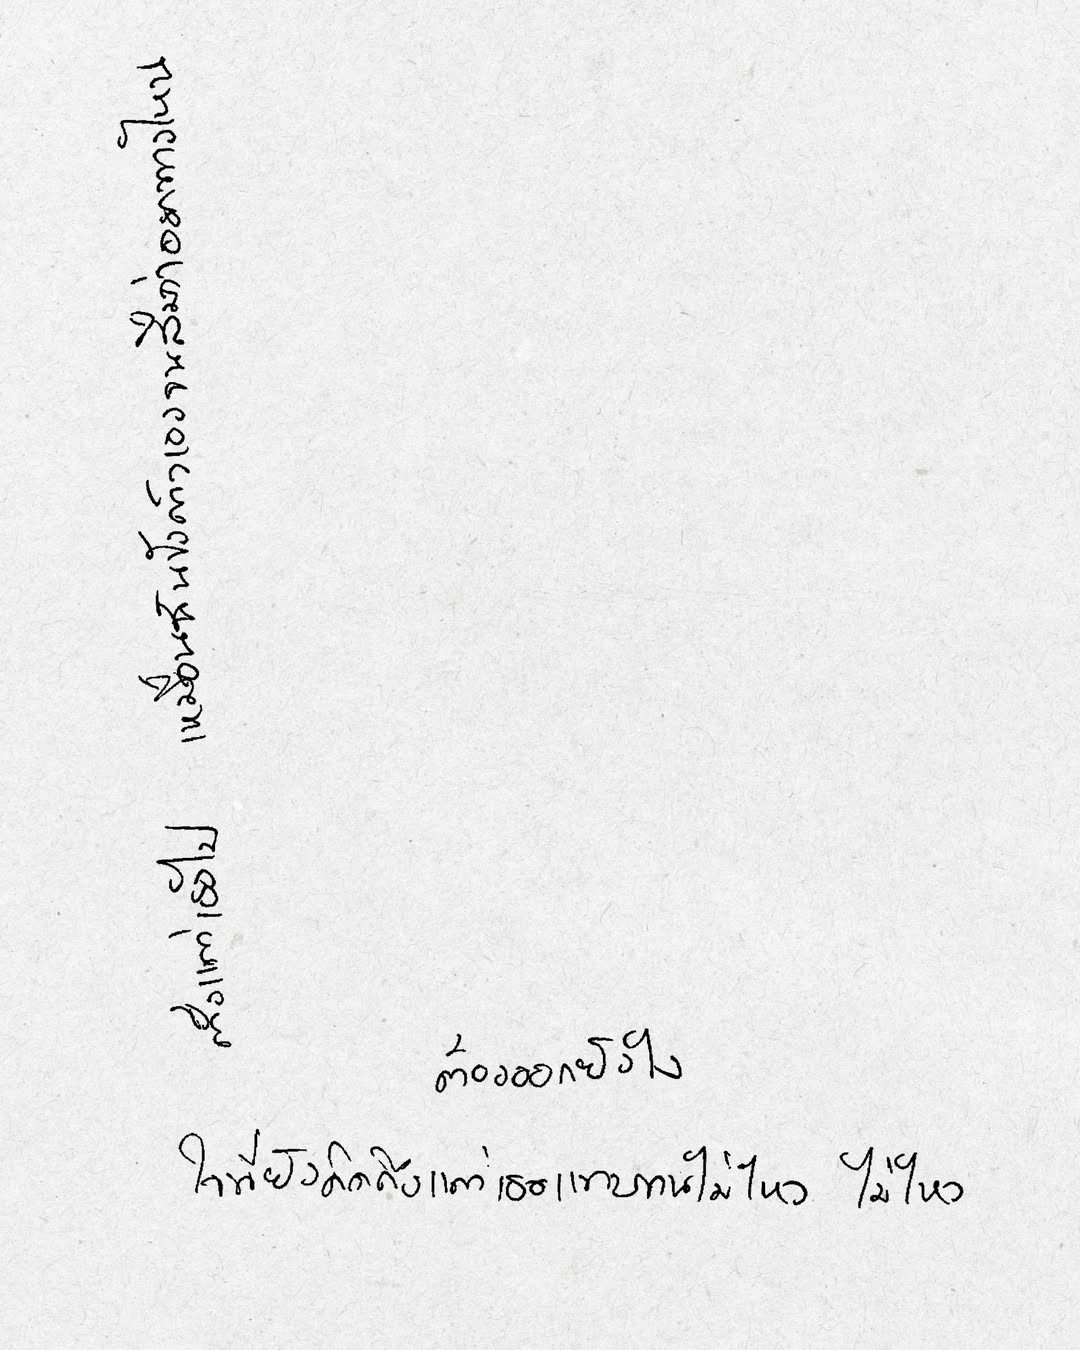 ตั้งแต่เธอไป เหมือนฉันขังตัวเองจนลืมว่าออกทางไหน
ต้องออกยังไง
ใจที่ยังคิดถึงแต่เธอแทบทนไม่ไหว ไม่ไหว